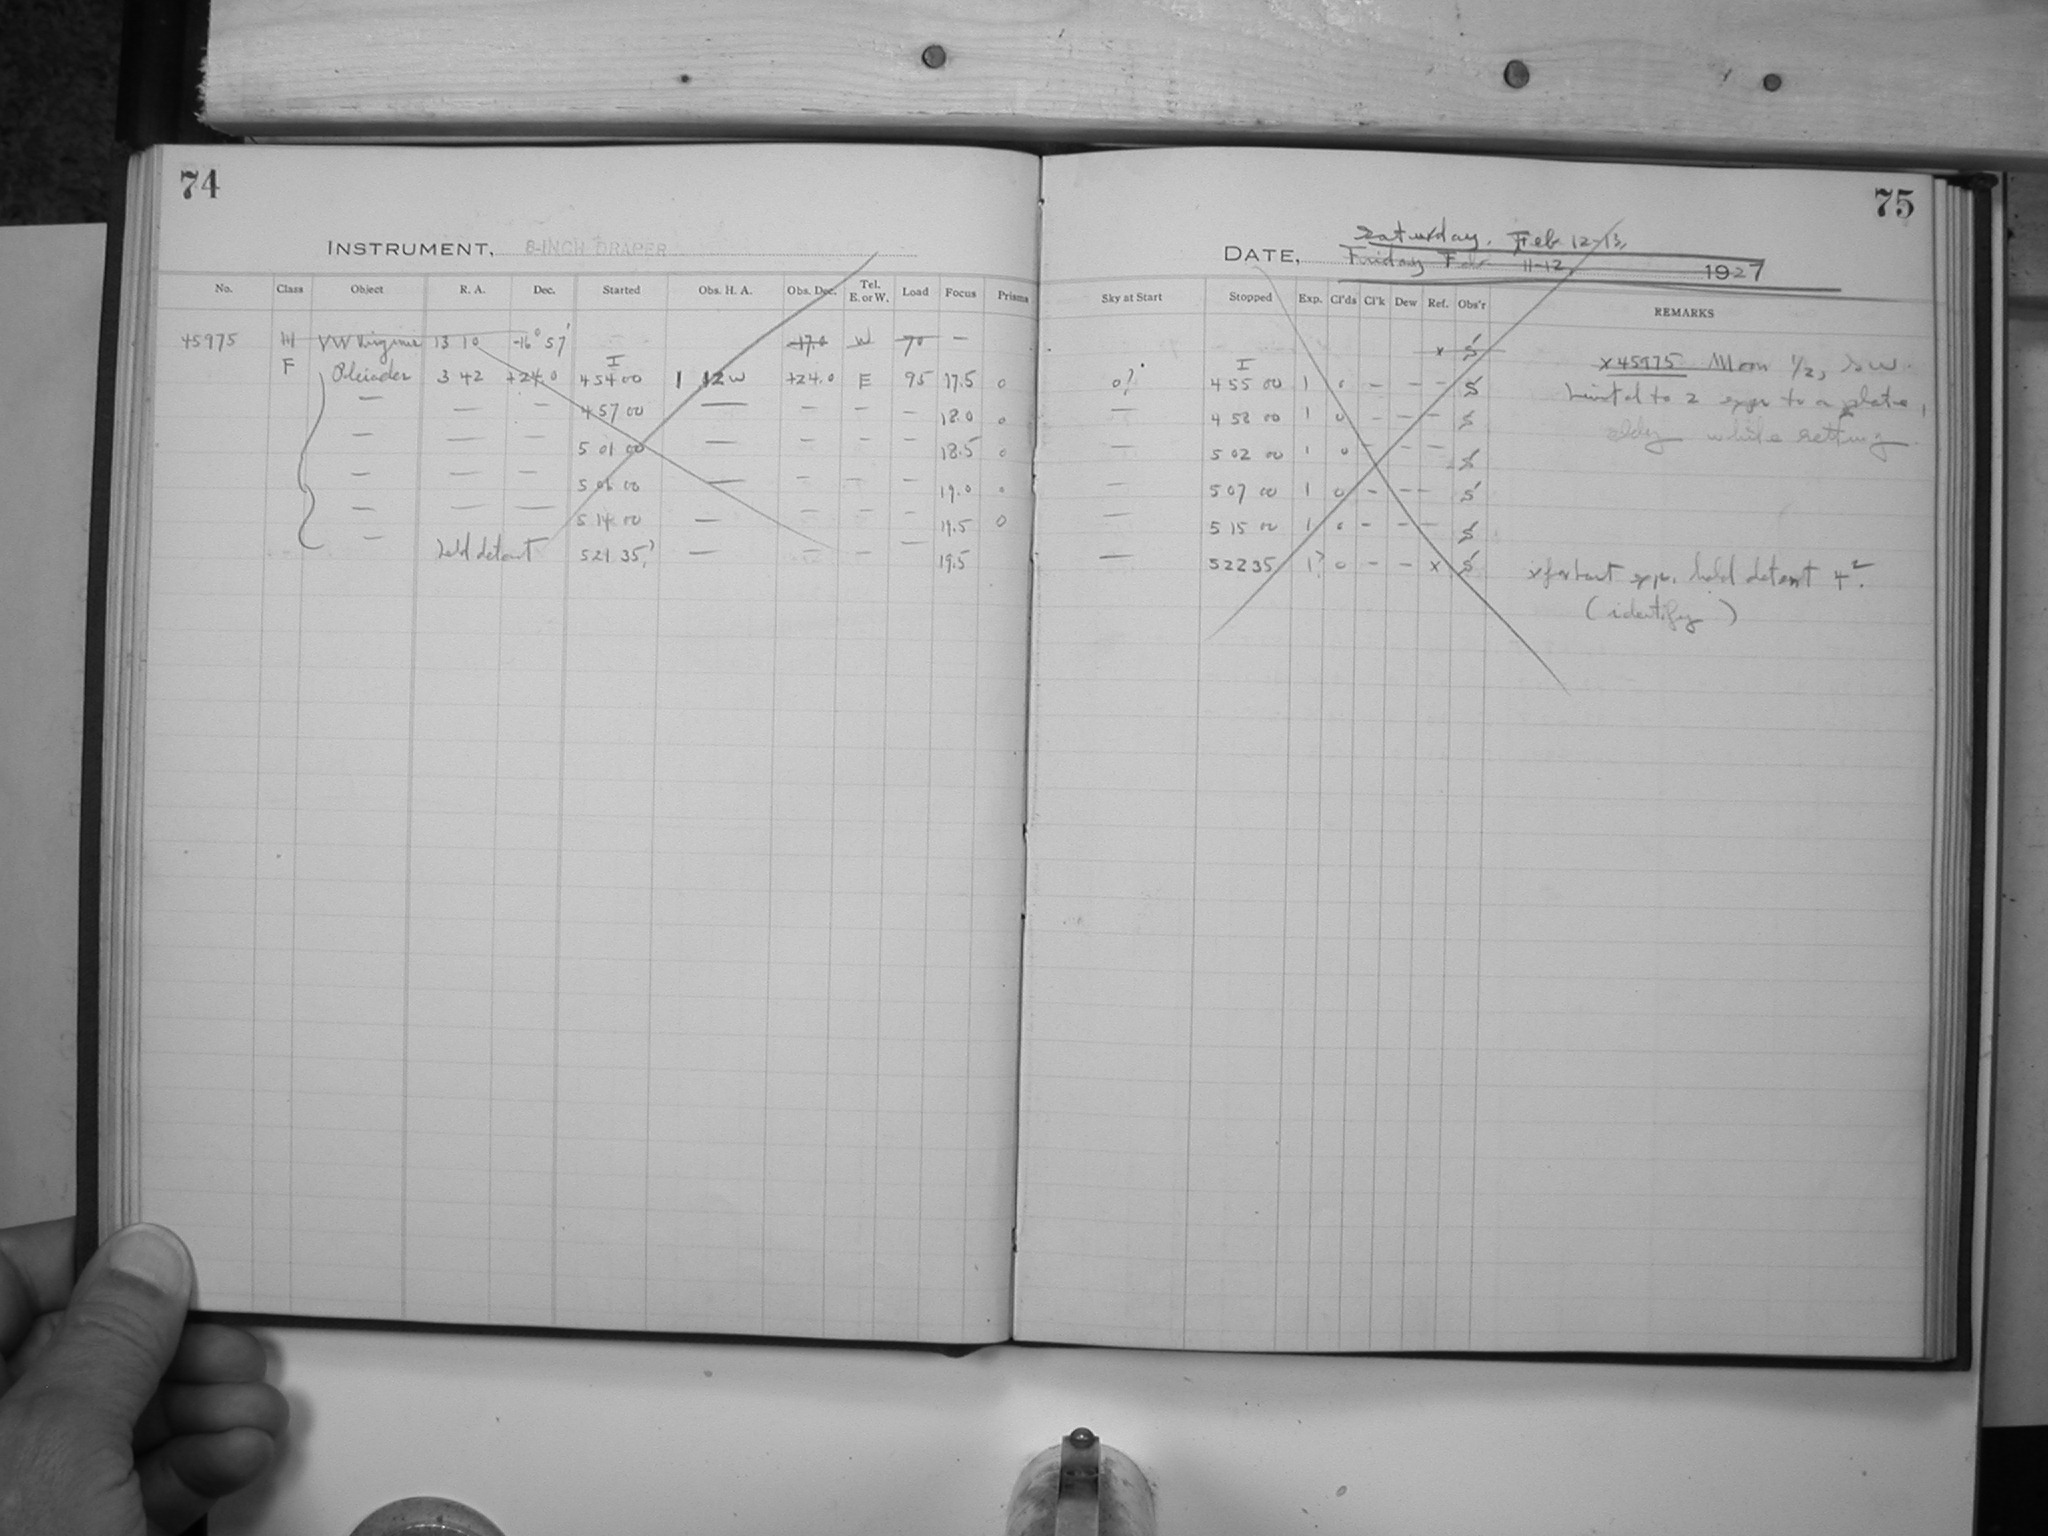 74
INSTRUMENT, 8-INCH DRAPER
No. Class Object R. A. Dec. Started Obs. H. A. Obs. Dec. Tel. E. or W. Load Focus Prisms
45975 VW Virginis 13 10 -16° 57' 17.0 W 70 —
F Pleiades 3 42 +24.0 I 4 54 00 1 12 W +24.0 E 95 17.5 0
— — — 4 57 00 — — — — 18.0 0
— — — 5 01 00 — — — — 18.5 0
— — — 5 06 00 — — — — 19.0 0
— — — 5 14 00 — — — — 19.5 0
— held detent 5 21 35? — — — — 19.5
75
Saturday, Feb 12-13,
DATE, Friday Feb 11-12, 1927
Sky at Start Stopped Exp. Cl'ds Cl'k Dew Ref. Obs'r REMARKS
x S x 45975 Moon 1/2,
0? I 4 55 00 1 0 — — — S 2 exps to a plate,
— 4 58 00 1 0 — — — S cldy while setting
— 5 02 00 1 0 — — S
— 5 07 00 1 0 — — — S
— 5 15 00 1 0 — — — S
— 5 22 35 1? 0 — — x S x for last exp. held detent 4
(identify)